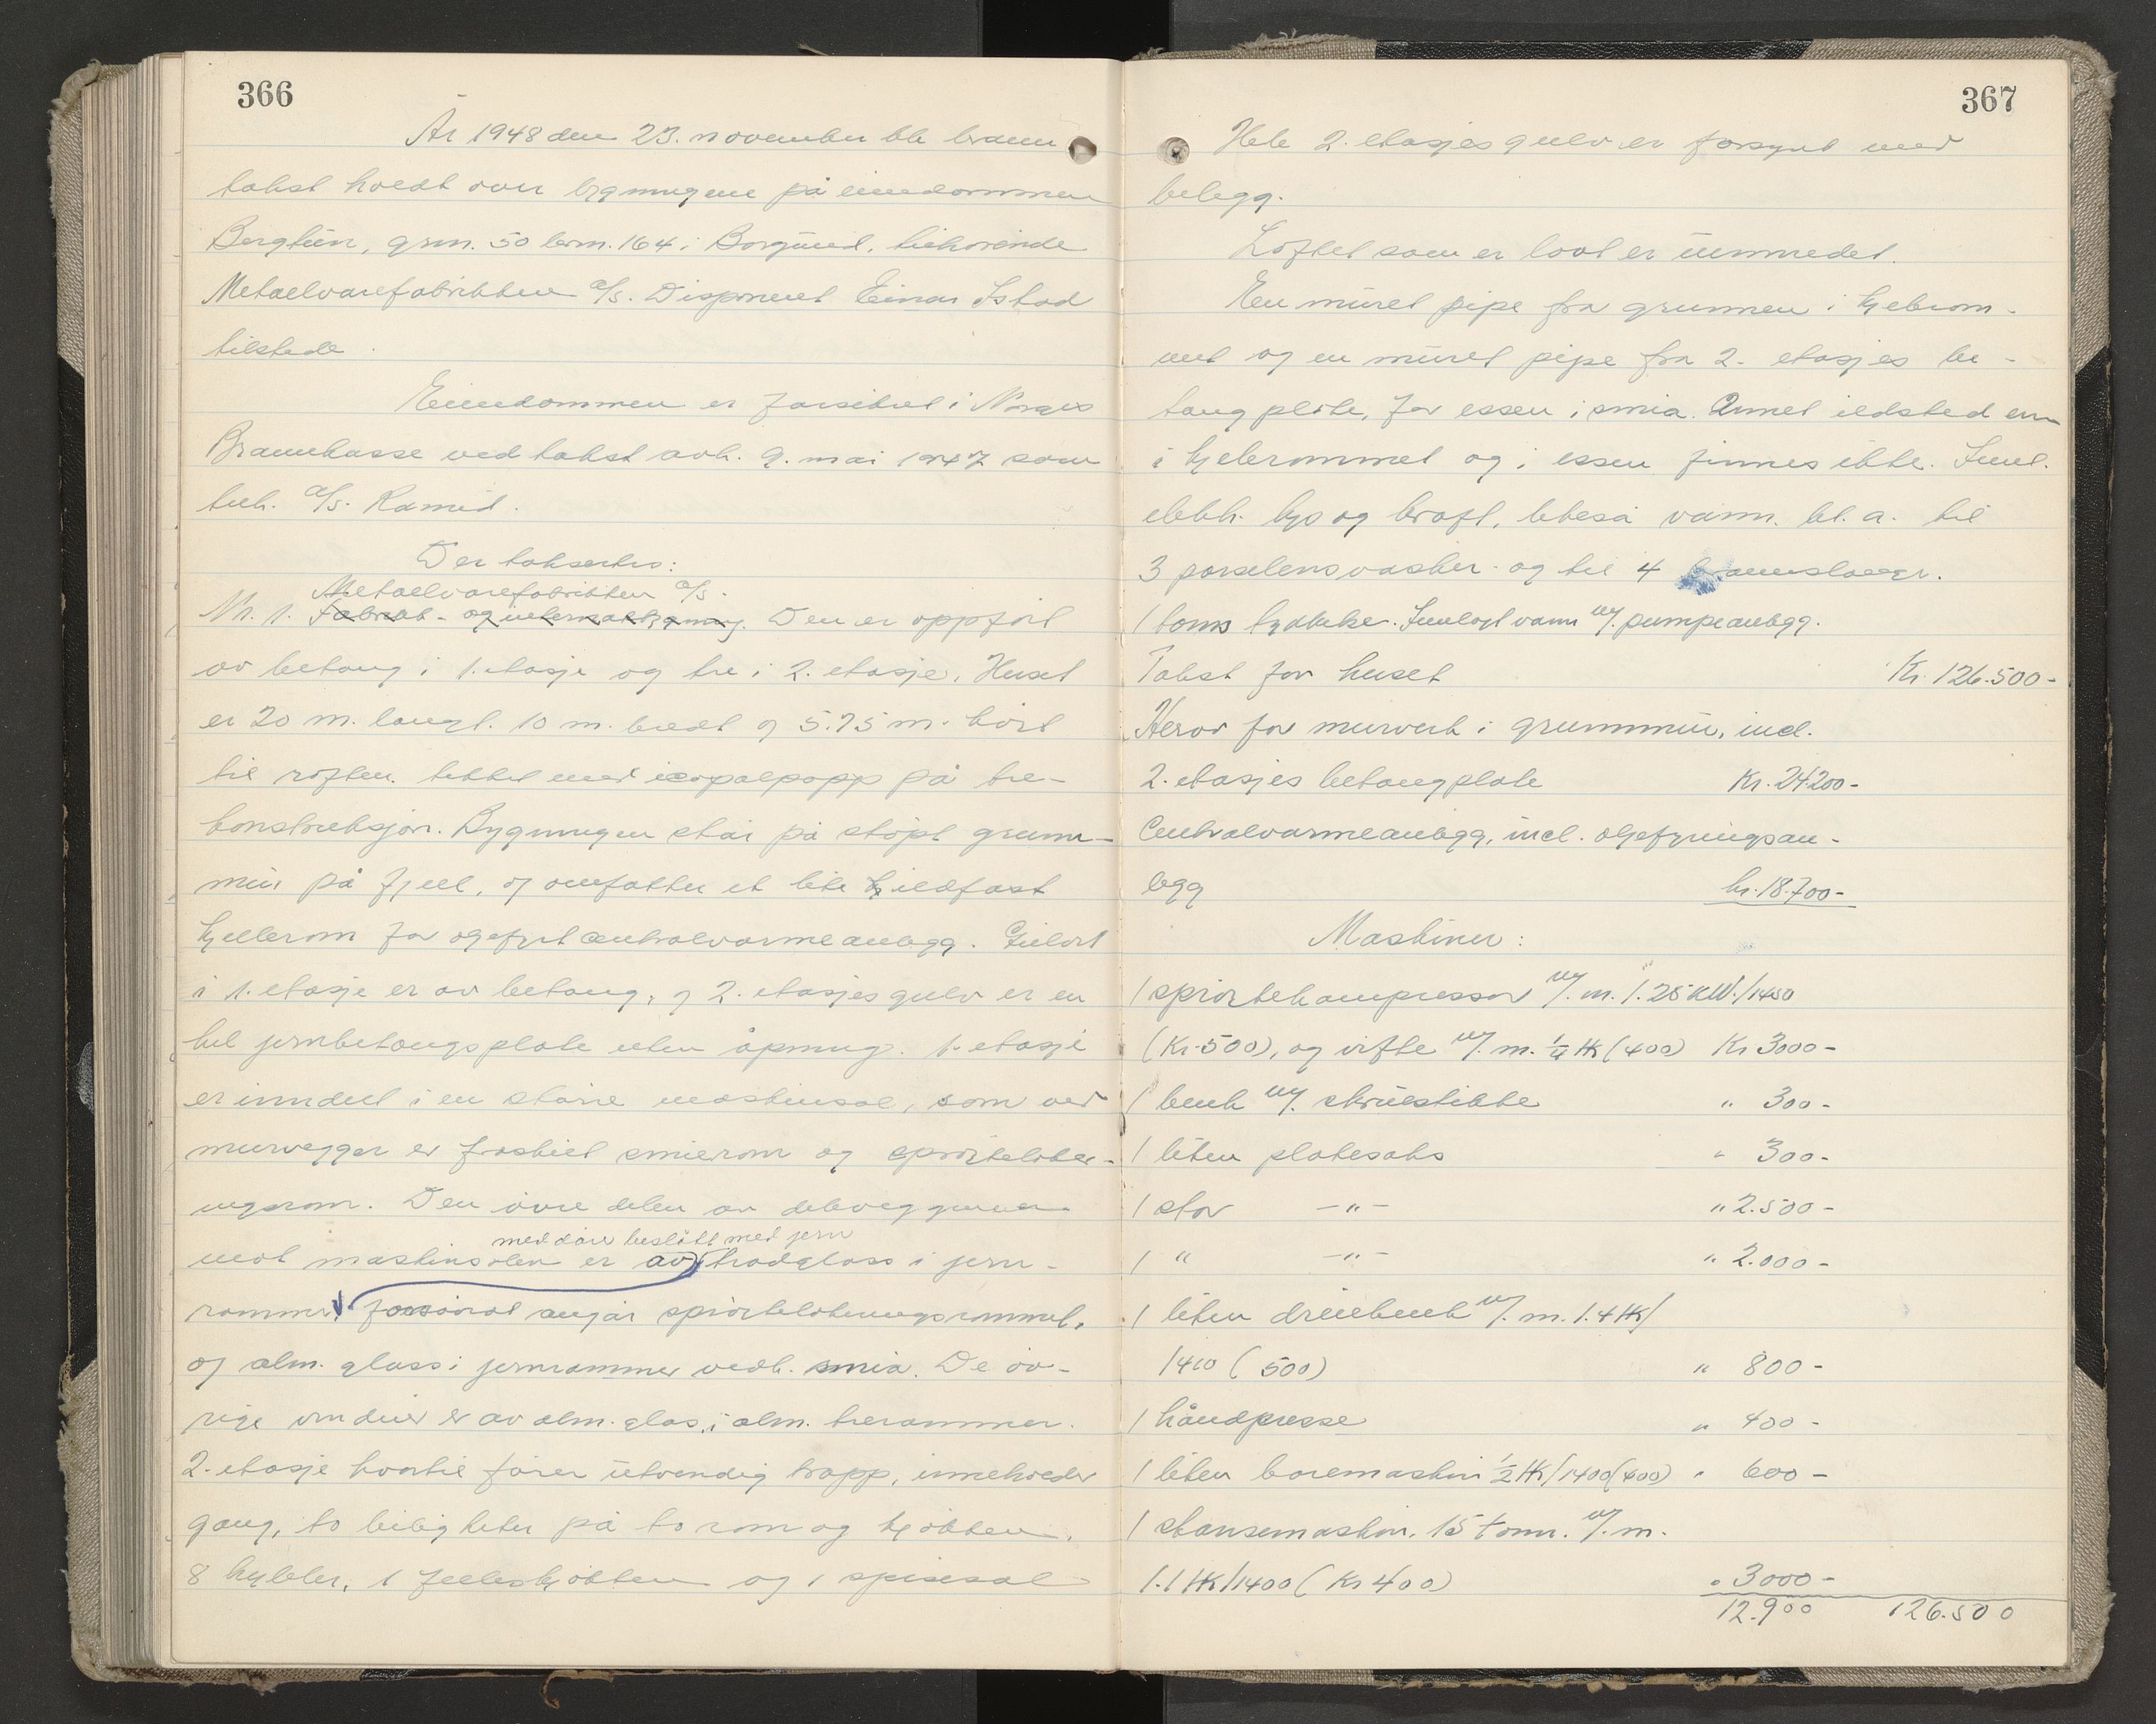 366
År 1948 den 23. november ble brann
takst holdt over bygningene på eiendommen
Bergtun, grnr. 50 brnr. 164 i Borgund, tilhørende
Metallvarefabrikken A/S. Disponent Einar Istad
tilstede.
Eiendommen er forsikret i Norges
Brannkasse ved takst avh. 9. mai 1947 som
tilh. A/S. Ramid.
Der takseres:
Metallvarefabrikken A/S.
Nr. 1. Fabrikk- og internatbygning. Den er oppført
av betong i 1. etasje og tre i 2. etasje. Huset
er 20 m. langt. 10 m. bredt og 5.75 m. høit
til røsten. tekket med icopalpapp på tre-
konstruksjon. Bygningen står på støpt grunn-
mur på fjell, og omfatter et lite ildfast
kjellerom for oljefyrt centralvarmeanlegg. Gulvet
i 1. etasje er av betong, og 2. etasjes gulv er en
hel jernbetongsplate uten åpning. 1. etasje
er inndelt i en større maskinsal, som ved
murvegger er fraskilt smierom og sprøitelaker-
ingsrom. Den øvre delen av deleveggene
med dører beslått med jern
mot maskinsalen er av trådglass i jern-
rammer forsåvidt angår sprøitelakeringsrommet,
og alm. glass i jernrammer vedk. smia. De øv-
rige vinduer er av alm. glas. i alm. trerammer.
2. etasje hvortil fører utvendig trapp, inneholder
gang, to leiligheter på to rom og kjøkken,
8 hybler, 1 felleskjøkken og 1 spisesal
367
Hele 2. etasjes gulv er forsynt med
belegg.
Loftet som er lavt er uinnredet.
En muret pipe fra grunnen i kjelrom-
met og en muret pipe fra 2. etasjes be-
tongplate, for essen i smia. Annet ildsted enn
i kjelerommet og i essen finnes ikke. Innl.
elekk. lys og kraft, likeså vann. bl. a. til
3 porselensvasker og til 4 brannslanger.
1 toms tykkelse. Innlagt vann m/. pumpeanlegg.
Takst for huset Kr. 126.500-
Herav for murverk i grunnmur, incl.
2. etasjes betongplate Kr. 24200-
Centralvarmeanlegg, incl. oljefyringsan-
legg kr. 18.700-
Maskiner:
1 sprøitekompressor m/. m. 1.25 KW./1450
(Kr. 500), og vifte m/. m. 1/4 HK (400) Kr 3000-
1 benk m/. skruestikke " 300-
1 liten platesaks " 300-
1 stor -"- " 2.500-
1 " -"- " 2.000-
1 liten dreiebenk m/. m. 1.4 HK/
1400 (500) " 800-
1 håndpresse " 400-
1 liten boremaskin 1/2 HK/1400 (400) " 600-
1 stansemaskin. 15 tonn. m/. m.
1.1 HK/1400 (Kr 400) " 3000-
12.900 126.500